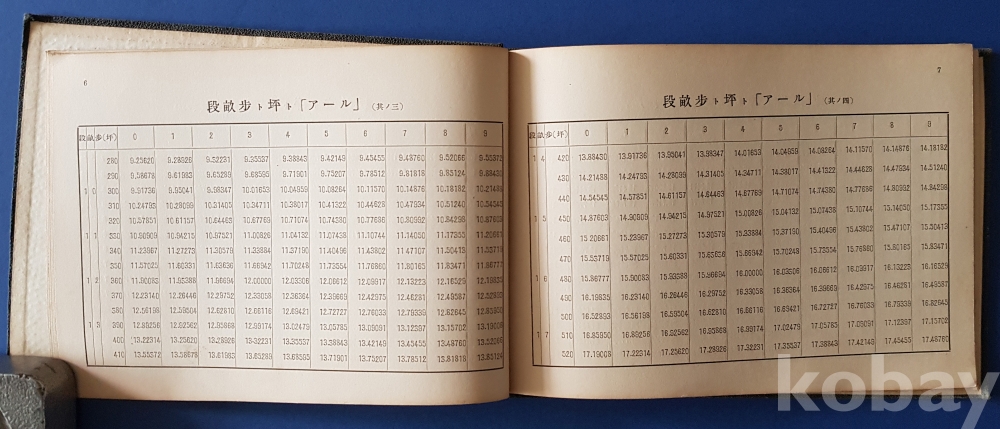 6
段畝歩ト坪ト「アール」（其ノ三）
段 畝 歩(坪) 0 1 2 3 4 5 6 7 8 9
280 9.25620 9.28926 9.32231 9.35537 9.38843 9.42149 9.45455 9.48760 9.52066 9.55372
290 9.58678 9.61983 9.65289 9.68595 9.71901 9.75207 9.78512 9.81818 9.85124 9.88430
1 0 300 9.91736 9.95041 9.98347 10.01653 10.04959 10.08264 10.11570 10.14876 10.18182 10.21488
310 10.24793 10.28099 10.31405 10.34711 10.38017 10.41322 10.44628 10.47934 10.51240 10.54545
320 10.57851 10.61157 10.64463 10.67769 10.71074 10.74380 10.77686 10.80992 10.84298 10.87603
1 1 330 10.90909 10.94215 10.97521 11.00826 11.04132 11.07438 11.10744 11.14050 11.17355 11.20661
340 11.23967 11.27273 11.30579 11.33884 11.37190 11.40496 11.43802 11.47107 11.50413 11.53719
350 11.57025 11.60331 11.63636 11.66942 11.70248 11.73554 11.76860 11.80165 11.83471 11.86777
1 2 360 11.90083 11.93388 11.96694 12.00000 12.03306 12.06612 12.09917 12.13223 12.16529 12.19835
370 12.23140 12.26446 12.29752 12.33058 12.36364 12.39669 12.42975 12.46281 12.49587 12.52893
380 12.56198 12.59504 12.62810 12.66116 12.69421 12.72727 12.76033 12.79339 12.82645 12.85950
1 3 390 12.89256 12.92562 12.95868 12.99174 13.02479 13.05785 13.09091 13.12397 13.15702 13.19008
400 13.22314 13.25620 13.28926 13.32231 13.35537 13.38843 13.42149 13.45455 13.48760 13.52066
410 13.55372 13.58678 13.61983 13.65289 13.68595 13.71901 13.75207 13.78512 13.81818 13.85124
7
段畝歩ト坪ト「アール」（其ノ四）
段 畝 歩(坪) 0 1 2 3 4 5 6 7 8 9
1 4 420 13.88430 13.91736 13.95041 13.98347 14.01653 14.04959 14.08264 14.11570 14.14876 14.18182
430 14.21488 14.24793 14.28099 14.31405 14.34711 14.38017 14.41322 14.44628 14.47934 14.51240
440 14.54545 14.57851 14.61157 14.64463 14.67769 14.71074 14.74380 14.77686 14.80992 14.84298
1 5 450 14.87603 14.90909 14.94215 14.97521 15.00826 15.04132 15.07438 15.10744 15.14050 15.17355
460 15.20661 15.23967 15.27273 15.30579 15.33884 15.37190 15.40496 15.43802 15.47107 15.50413
470 15.53719 15.57025 15.60331 15.63636 15.66942 15.70248 15.73554 15.76860 15.80165 15.83471
1 6 480 15.86777 15.90083 15.93388 15.96694 16.00000 16.03306 16.06612 16.09917 16.13223 16.16529
490 16.19835 16.23140 16.26446 16.29752 16.33058 16.36364 16.39669 16.42975 16.46281 16.49587
500 16.52893 16.56198 16.59504 16.62810 16.66116 16.69421 16.72727 16.76033 16.79339 16.82645
1 7 510 16.85950 16.89256 16.92562 16.95868 16.99174 17.02479 17.05785 17.09091 17.12397 17.15702
520 17.19008 17.22314 17.25620 17.28926 17.32231 17.35537 17.38843 17.42149 17.45455 17.48760
kobay